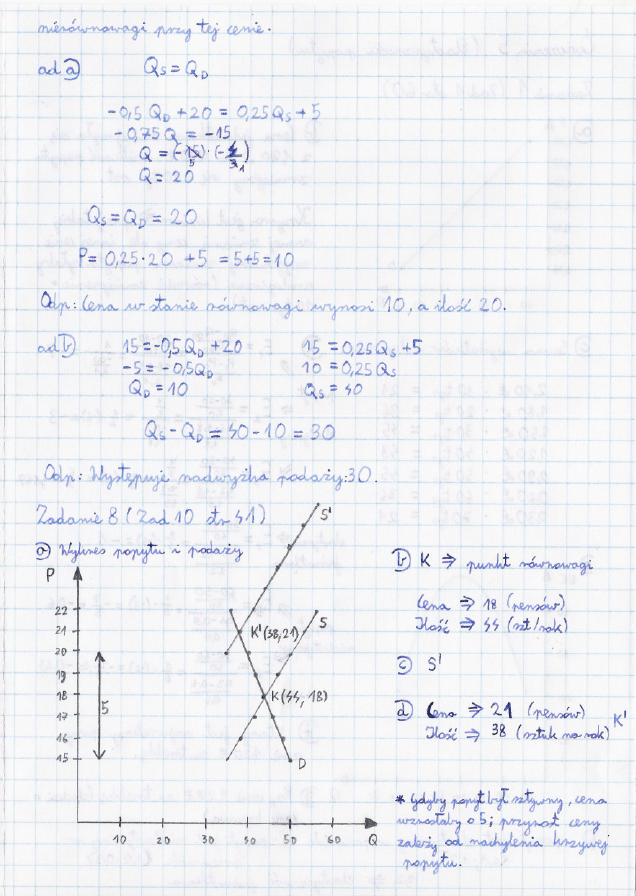 nierównowagi przy tej cenie.
ad a) Q_S = Q_D
-0,5 Q_D + 20 = 0,25 Q_S + 5
-0,75 Q = -15
Q = (-15)·(-4/3)
5 1
Q = 20
Q_S = Q_D = 20
P = 0,25·20 + 5 = 5+5 = 10
Odp: Cena w stanie równowagi wynosi 10, a ilość 20.
ad b) 15 = -0,5 Q_D + 20 15 = 0,25 Q_S + 5
-5 = -0,5 Q_D 10 = 0,25 Q_S
Q_D = 10 Q_S = 40
Q_S - Q_D = 40 - 10 = 30
Odp: Występuje nadwyżka podaży: 30.
Zadanie 8 (Zad 10 str 41)
a) Wykres popytu i podaży
P
S'
S
22
21
20
19
18
17
16
15
5
K'(38,21)
K(44,18)
D
10 20 30 40 50 60 Q
b) K ⇒ punkt równowagi
Cena ⇒ 18 (pensów)
Ilość ⇒ 44 (szt/rok)
c) S'
d) Cena ⇒ 21 (pensów) K'
Ilość ⇒ 38 (sztuk na rok)
* Gdyby popyt był sztywny, cena
wzrosłaby o 5; przyrost ceny
zależy od nachylenia krzywej
popytu.